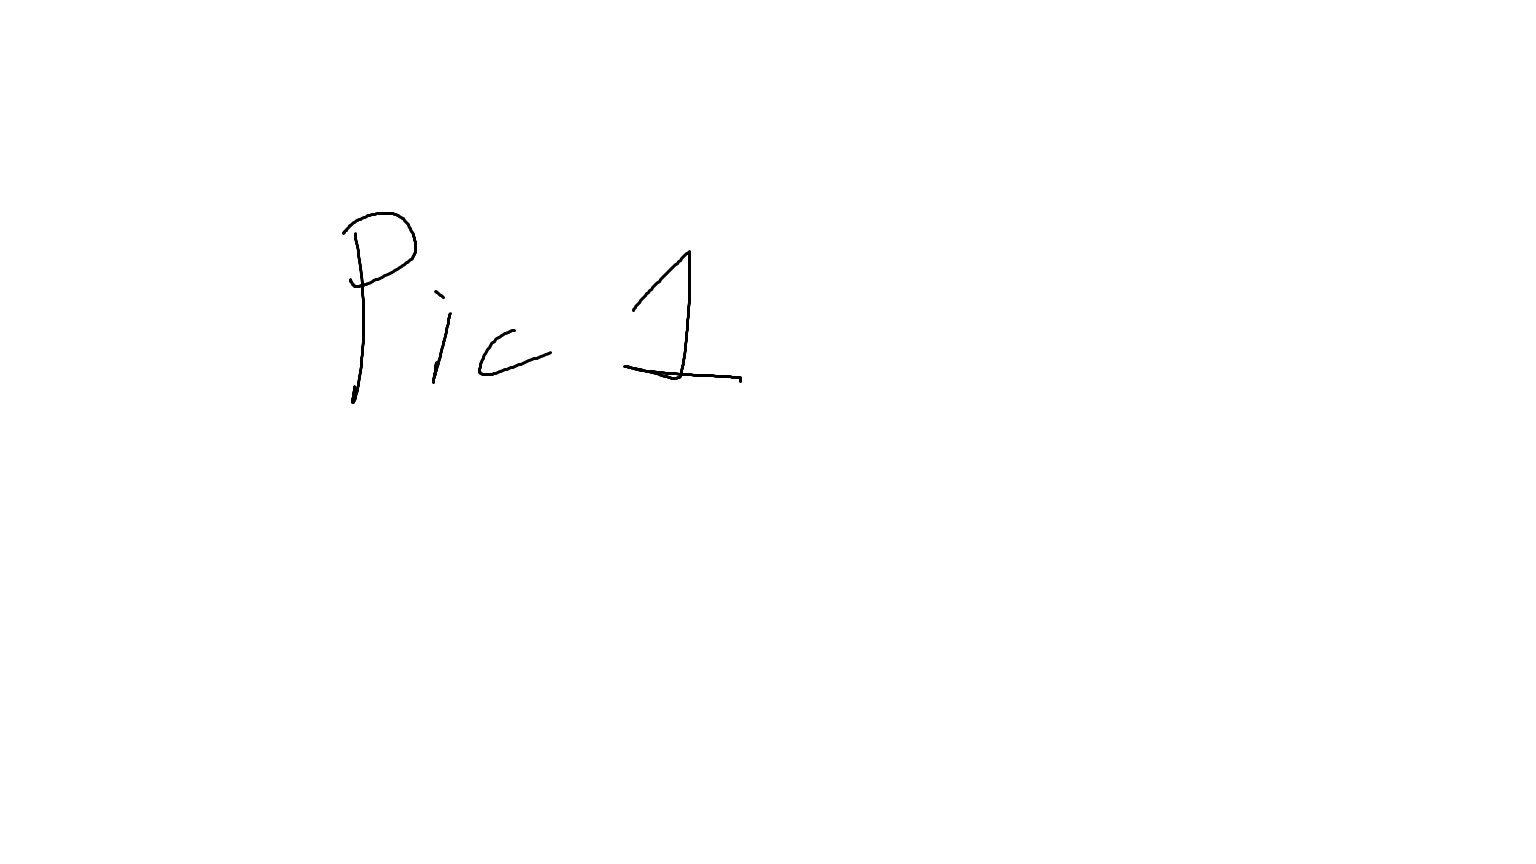 Pic 1